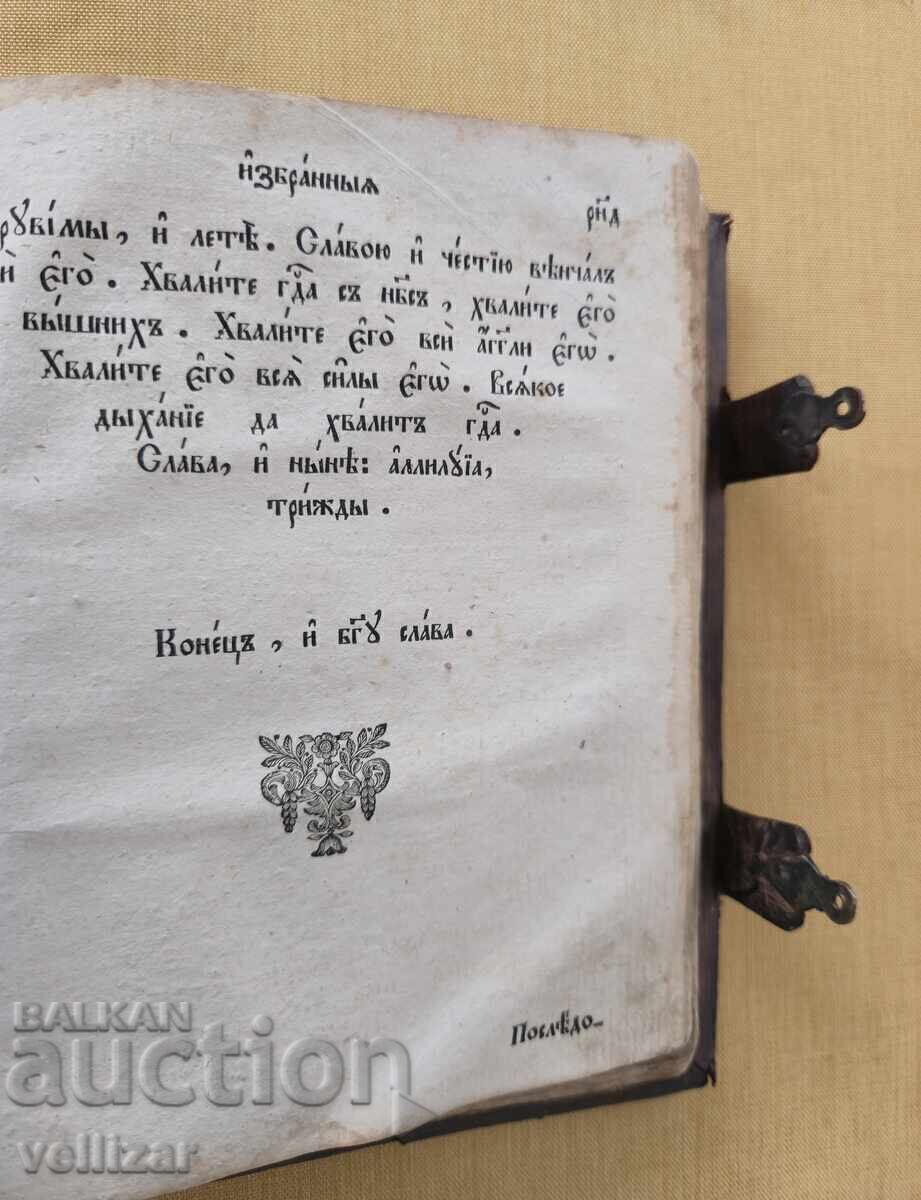 и҆збра́нныѧ
рн҃д
рꙋві́мы, и҆ летѣ̀. Сла́вою и҆ че́стїю вѣнча́лъ
й є҆гò. Хвали́те гдⷭ҇а съ нб҃съ, хвали́те є҆го̀
вы́шнихъ. Хвали́те є҆го̀ всѝ а҆́гг҃ли є҆гѡ̀.
Хвали́те є҆го̀ всѧ̀ си̑лы є҆гѡ̀. Всѧ́кое
дыха́нїе да хва́литъ гдⷭ҇а.
Сла́ва, и҆ ны́нѣ: а҆ллилꙋ́їа,
три́жды.
Коне́цъ, и҆ бг҃ꙋ сла́ва.
Послѣ́до-
BALKAN
auction
vellizar